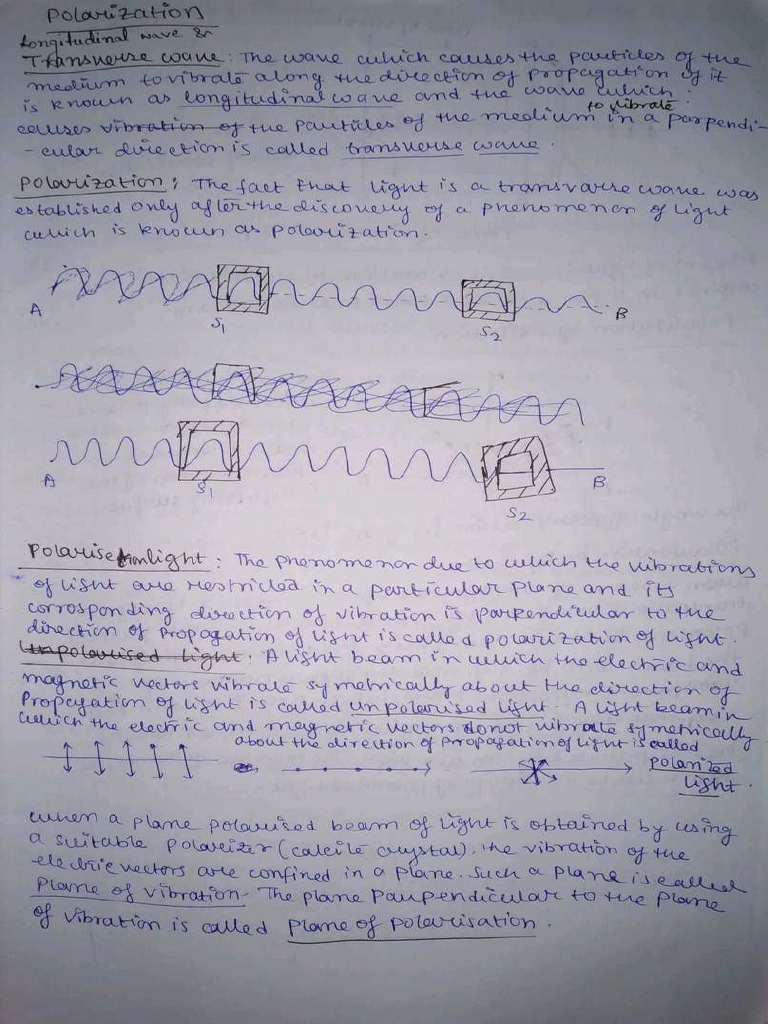 Polarization
Longitudinal wave &
Transverse wave: The wave which causes the particles of the
medium to vibrate along the direction of propagation of it
is known as longitudinal wave and the wave which
to vibrate
causes vibration of the particles of the medium in a parpendi-
-cular direction is called transverse wave.
Polarization: The fact that light is a transvarse wave was
established only after the discovery of a phenomenon of light
which is known as polarization.
A S1 S2 B
A S1 S2 B
Polarise light: The phenomenon due to which the vibrations
of light are restricted in a particular plane and its
corrosponding direction of vibration is parpendicular to the
direction of propagation of light is called polarization of light.
Unpolarised light: A light beam in which the electric and
magnetic vectors vibrate symetrically about the direction of
Propagation of light is called unpolarised light. A light beam in
which the electric and magnetic vectors donot vibrate symetrically
about the direction of propagation of light is called
polarized
light.
when a plane polarised beam of light is obtained by using
a suitable polarizer (calcite crystal). the vibration of the
electric vectors are confined in a plane. Such a plane is called
plane of vibration. The plane parpendicular to the plane
of vibration is called plane of polarisation.